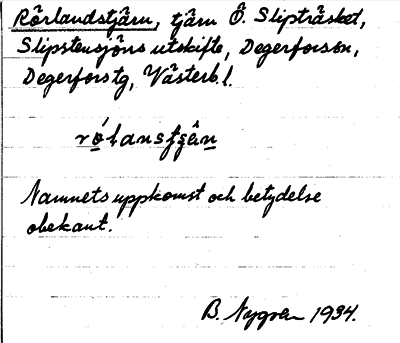 Rörlandstjärn, tjärn Ö. Slipträsket,
Slipstensjöns utskifte, Degerforsson,
Degerforstg, Västerb.l.
Namnets uppkomst och betydelse
obekant.
B. Nygren 1934.